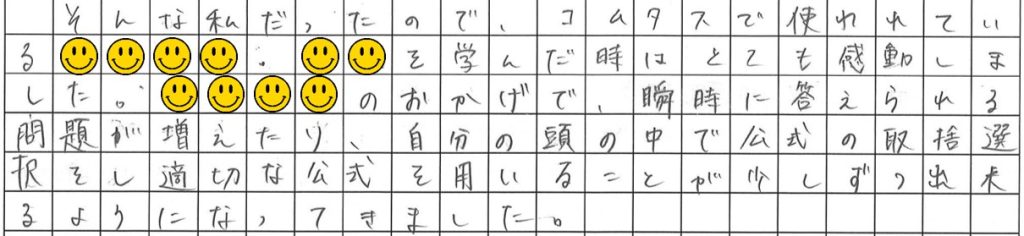 そんな私だったので、コムタスで使われてい
る。を学んだ時はとても感動しま
した。のおかげで、瞬時に答えられる
問題が増えたり、自分の頭の中で公式の取捨選
択をし適切な公式を用いることが少しずつ出来
るようになってきました。